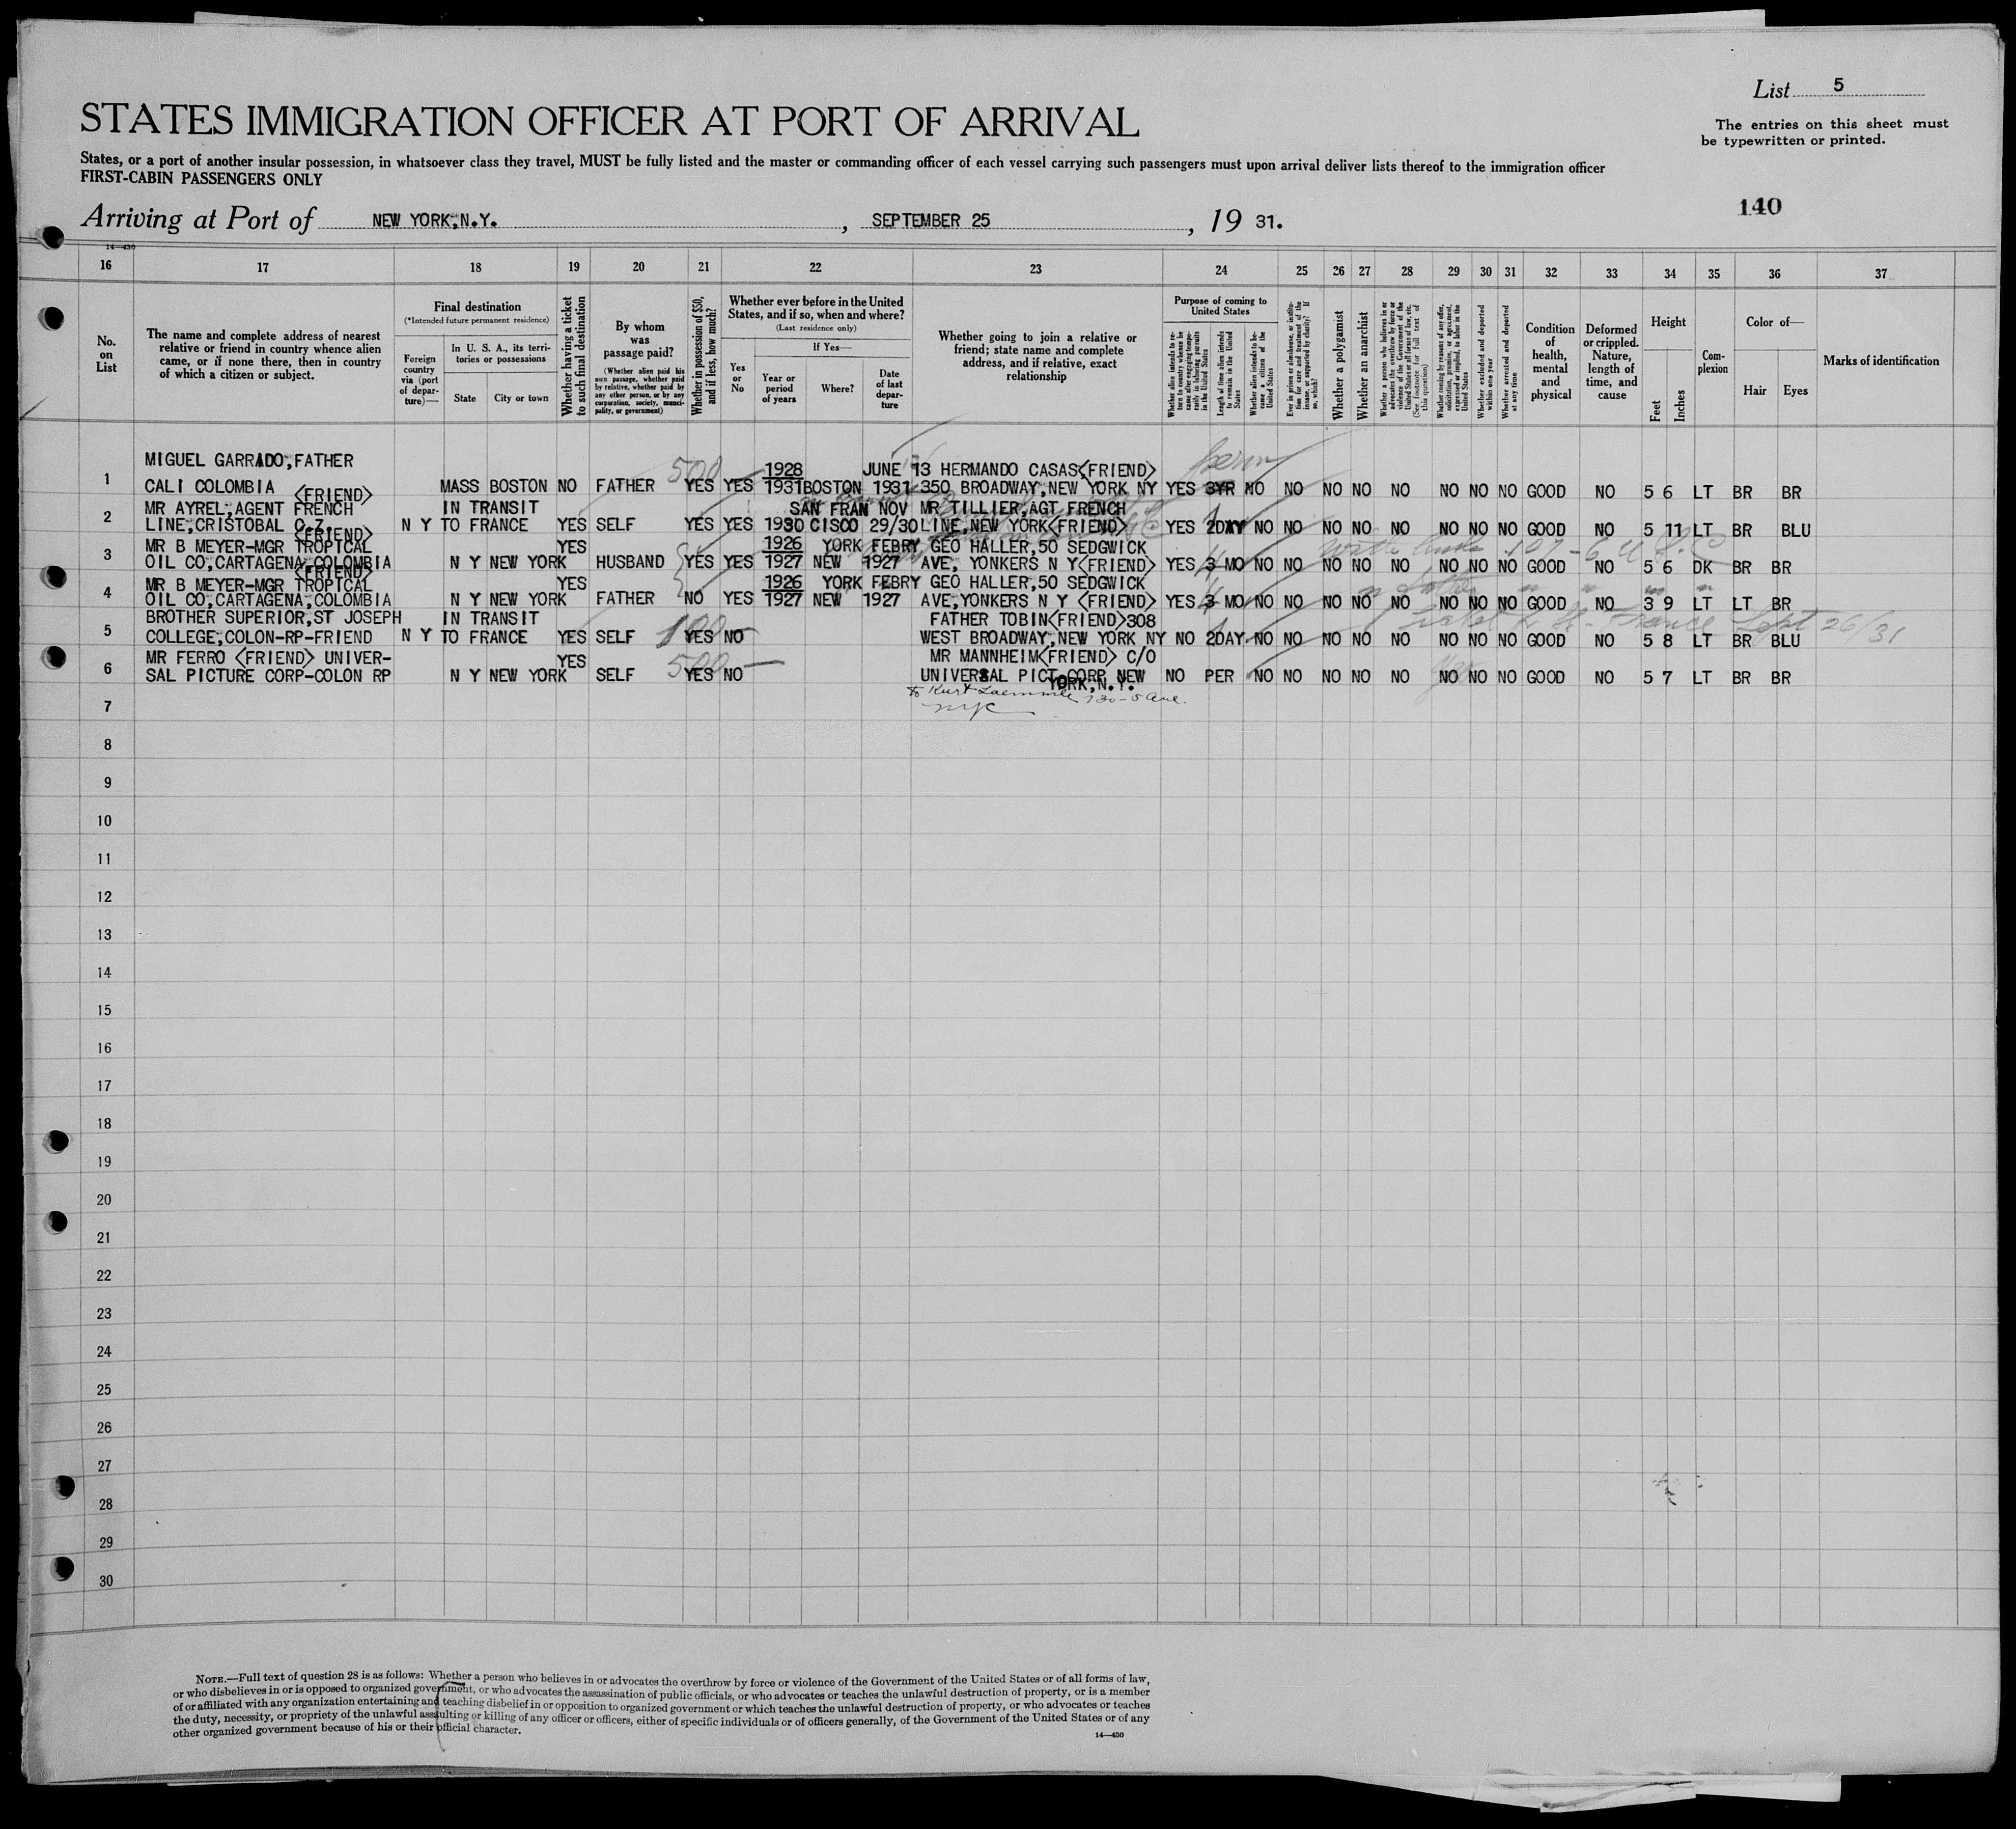 List 5
STATES IMMIGRATION OFFICER AT PORT OF ARRIVAL
The entries on this sheet must
be typewritten or printed.
States, or a port of another insular possession, in whatsoever class they travel, MUST be fully listed and the master or commanding officer of each vessel carrying such passengers must upon arrival deliver lists thereof to the immigration officer
FIRST-CABIN PASSENGERS ONLY
140
Arriving at Port of NEW YORK,N.Y. , SEPTEMBER 25 , 19 31.
14—430
16 17 18 19 20 21 22 23 24 25 26 27 28 29 30 31 32 33 34 35 36 37
No.
on
List
The name and complete address of nearest
relative or friend in country whence alien
came, or if none there, then in country
of which a citizen or subject.
Final destination
(*Intended future permanent residence)
Foreign
country
via (port
of depar-
ture)—
In U. S. A., its terri-
tories or possessions
State City or town
Whether having a ticket
to such final destination
By whom
was
passage paid?
(Whether alien paid his
own passage, whether paid
by relative, whether paid by
any other person, or by any
corporation, society, munici-
pality, or government)
Whether in possession of $50,
and if less, how much?
Whether ever before in the United
States, and if so, when and where?
(Last residence only)
Yes
or
No
If Yes—
Year or
period
of years
Where?
Date
of last
depar-
ture
Whether going to join a relative or
friend; state name and complete
address, and if relative, exact
relationship
Purpose of coming to
United States
Whether alien intends to re-
turn to country whence he
came after engaging tempo-
rarily in laboring pursuits
in the United States
Length of time alien intends
to remain in the United
States
Whether alien intends to be-
come a citizen of the
United States
Ever in prison or almshouse, or institu-
tion for care and treatment of the
insane, or supported by charity? If
so, which?
Whether a polygamist
Whether an anarchist
Whether a person who believes in or
advocates the overthrow by force or
violence of the Government of the
United States or all forms of law, etc.
(See footnote for full text of
this question)
Whether coming by reasons of any offer,
solicitation, promise, or agreement,
expressed or implied, to labor in the
United States
Whether excluded and deported
within one year
Whether arrested and deported
at any time
Condition
of
health,
mental
and
physical
Deformed
or crippled.
Nature,
length of
time, and
cause
Height
Feet
Inches
Com-
plexion
Color of—
Hair Eyes
Marks of identification
MIGUEL GARRADO,FATHER 500 1928 JUNE 13 HERMANDO CASAS(FRIEND) perm
1 CALI COLOMBIA MASS BOSTON NO FATHER YES YES 1931 BOSTON 1931 350 BROADWAY,NEW YORK NY YES 3YR NO NO NO NO NO NO NO NO GOOD NO 5 6 LT BR BR
(FRIEND)
MR AYREL,AGENT FRENCH IN TRANSIT SAN FRAN NOV MR TILLIER,AGT FRENCH
2 LINE,CRISTOBAL C.Z. N Y TO FRANCE YES SELF YES YES 1930 CISCO 29/30 LINE,NEW YORK(FRIEND) YES 2DAY NO NO NO NO NO NO NO NO GOOD NO 5 11 LT BR BLU
(FRIEND)
MR B MEYER-MGR TROPICAL YES 1926 YORK FEBRY GEO HALLER,50 SEDGWICK
3 OIL CO,CARTAGENA,COLOMBIA N Y NEW YORK HUSBAND YES YES 1927 NEW 1927 AVE, YONKERS N Y(FRIEND) YES 3 MO NO NO NO NO NO NO NO NO GOOD NO 5 6 DK BR BR
(FRIEND)
MR B MEYER-MGR TROPICAL YES 1926 YORK FEBRY GEO HALLER,50 SEDGWICK
4 OIL CO,CARTAGENA,COLOMBIA N Y NEW YORK FATHER NO YES 1927 NEW 1927 AVE,YONKERS N Y (FRIEND) YES 3 MO NO NO NO NO NO NO NO NO GOOD NO 3 9 LT LT BR
BROTHER SUPERIOR,ST JOSEPH IN TRANSIT 100 FATHER TOBIN(FRIEND)308 Sept 26/31
5 COLLEGE,COLON-RP-FRIEND N Y TO FRANCE YES SELF YES NO WEST BROADWAY,NEW YORK NY NO 2DAY NO NO NO NO NO NO NO NO GOOD NO 5 8 LT BR BLU
MR FERRO (FRIEND) UNIVER- YES 500 MR MANNHEIM(FRIEND) C/O
6 SAL PICTURE CORP-COLON RP N Y NEW YORK SELF YES NO UNIVERSAL PICT.CORP NEW NO PER NO NO NO NO NO NO NO NO GOOD NO 5 7 LT BR BR
YORK,N.Y.
to Kurt Laemmle 730-5 Ave.
NYC
7
8
9
10
11
12
13
14
15
16
17
18
19
20
21
22
23
24
25
26
27
28
29
30
NOTE.—Full text of question 28 is as follows: Whether a person who believes in or advocates the overthrow by force or violence of the Government of the United States or of all forms of law,
or who disbelieves in or is opposed to organized government, or who advocates the assassination of public officials, or who advocates or teaches the unlawful destruction of property, or is a member
of or affiliated with any organization entertaining and teaching disbelief in or opposition to organized government or which teaches the unlawful destruction of property, or who advocates or teaches
the duty, necessity, or propriety of the unlawful assaulting or killing of any officer or officers, either of specific individuals or of officers generally, of the Government of the United States or of any
other organized government because of his or their official character.
14—430